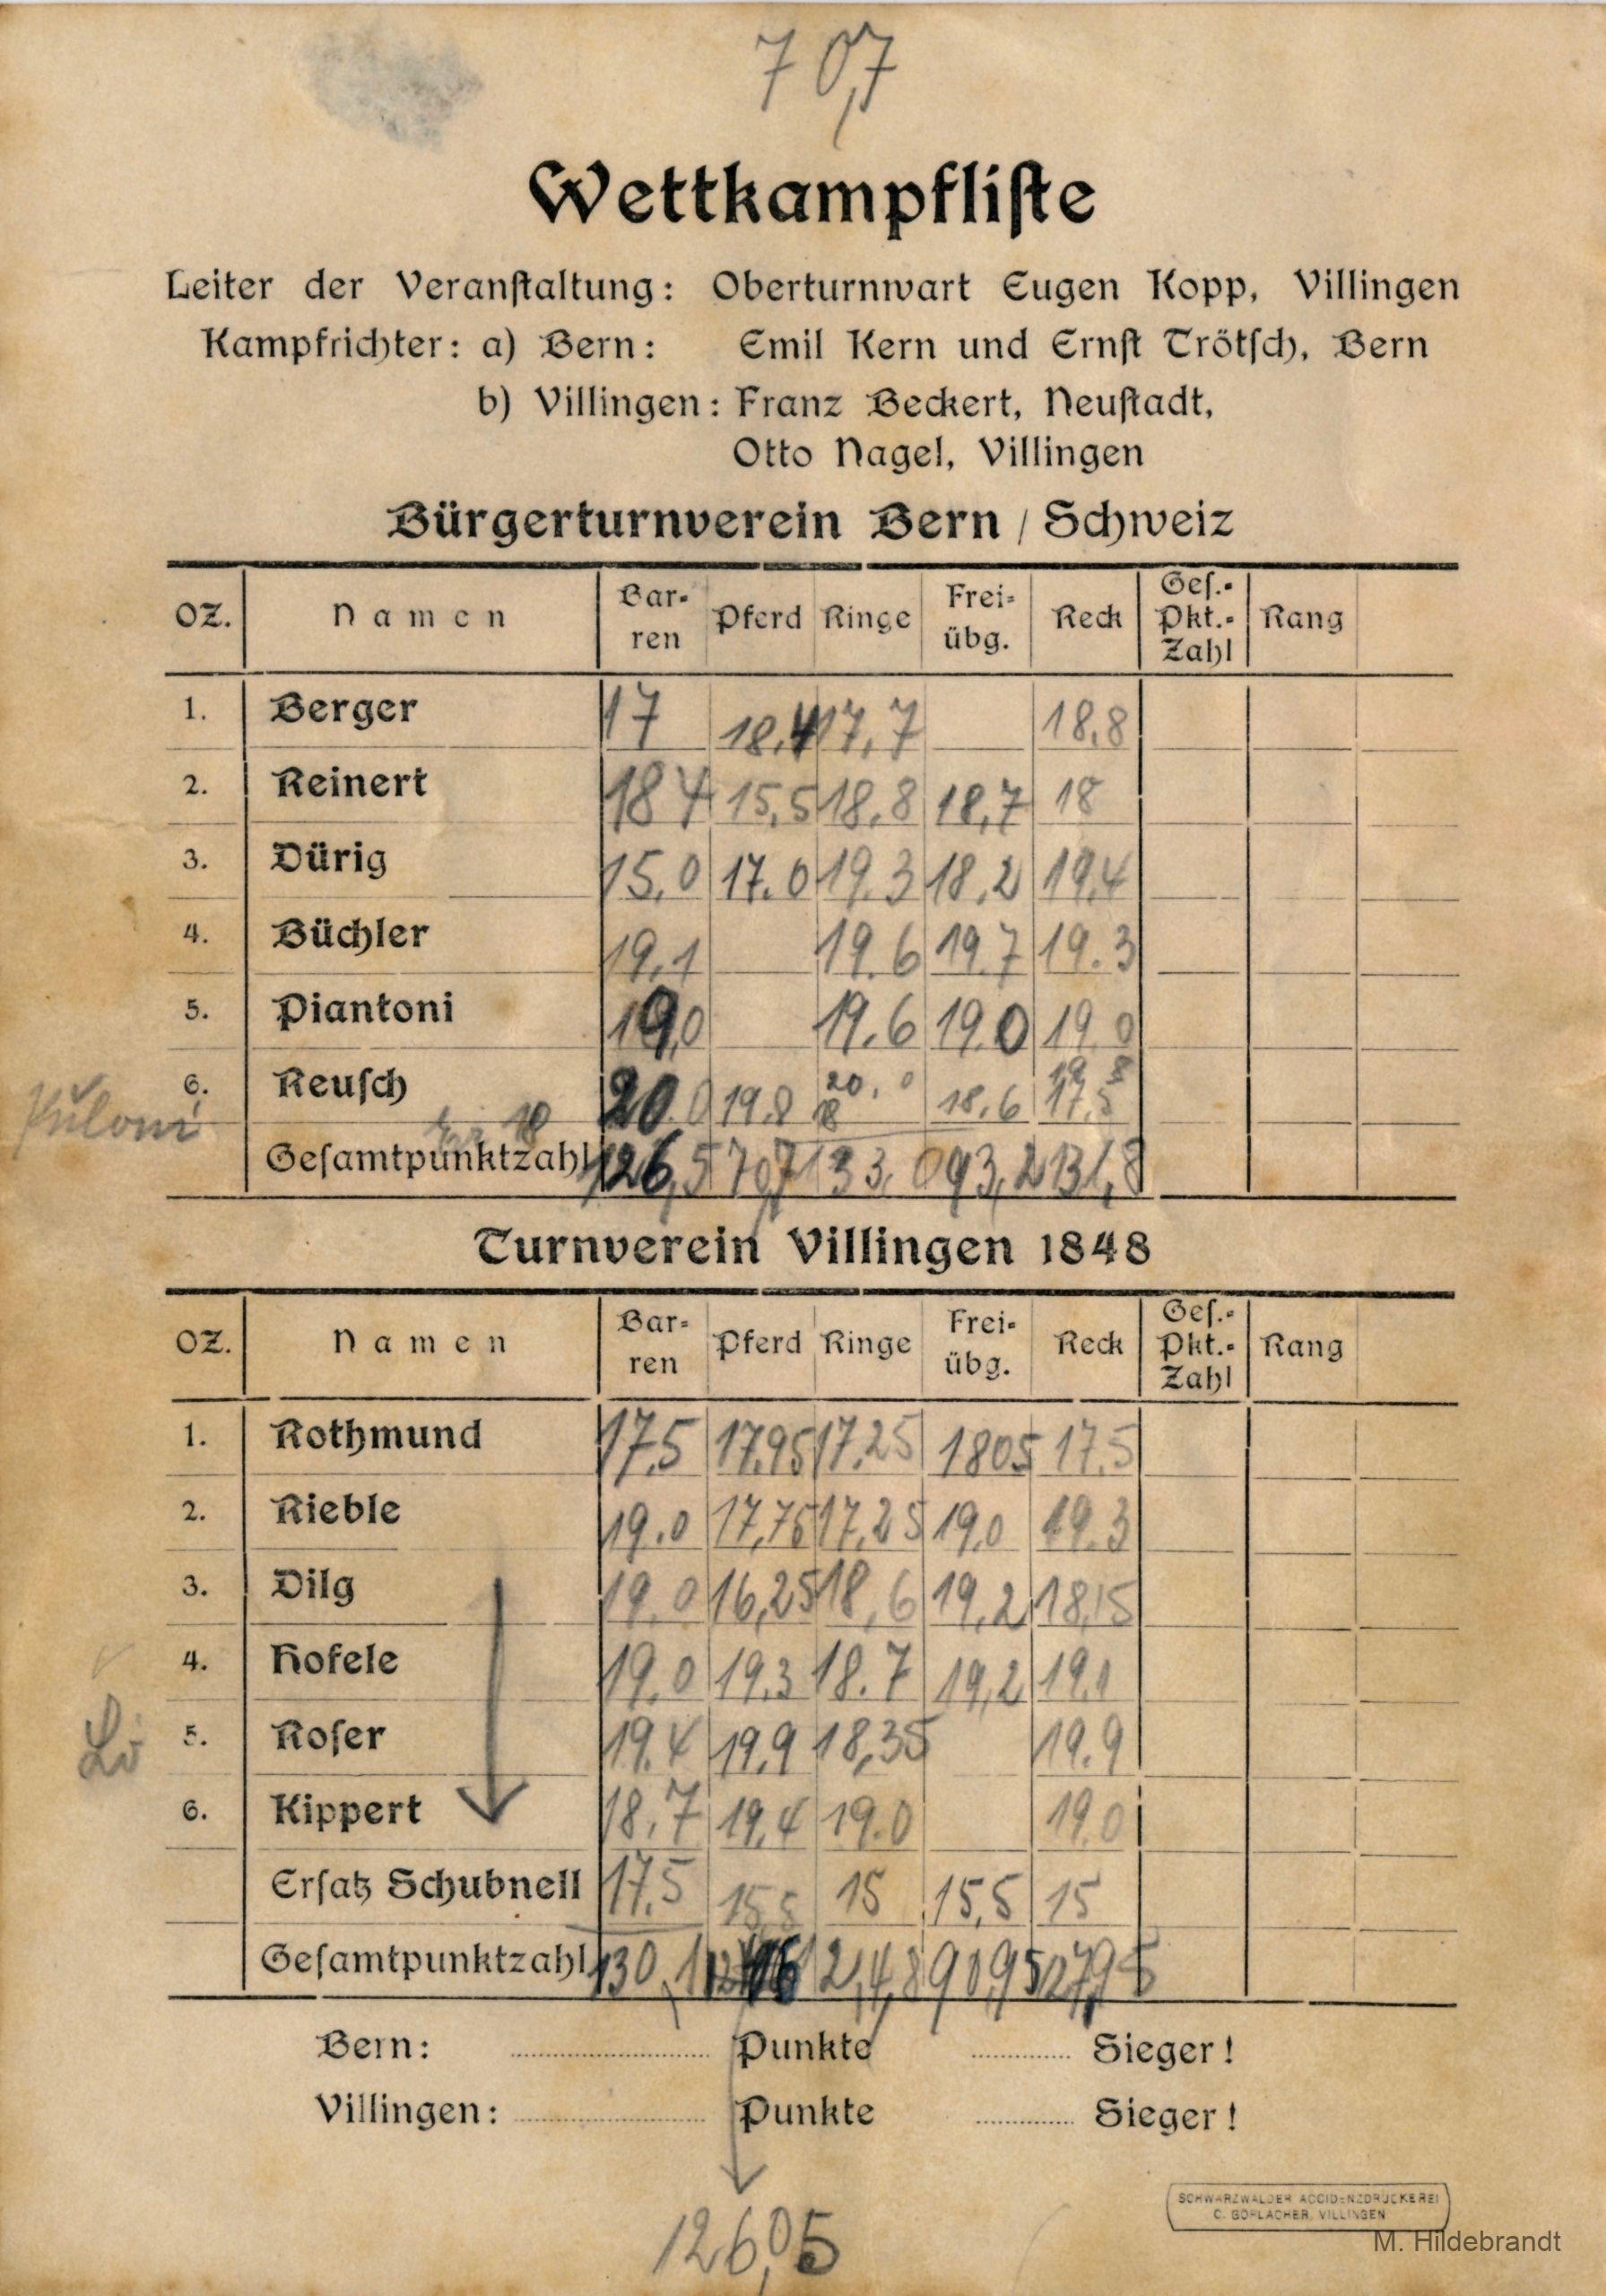 70,7
Wettkampfliſte
Leiter der Veranſtaltung: Oberturnwart Eugen Kopp, Villingen
Kampfrichter: a) Bern: Emil Kern und Ernſt Trötſch, Bern
b) Villingen: Franz Beckert, Neuſtadt,
Otto Nagel, Villingen
Bürgerturnverein Bern / Schweiz
OZ. Namen Bar-ren Pferd Ringe Frei-übg. Reck Geſ.-Pkt.-Zahl Rang
1. Berger 17 18,4 17,7 18,8
2. Reinert 18 4 15,5 18,8 18,7 18
3. Dürig 15,0 17.0 19.3 18,2 19,4
4. Büchler 19,1 19.6 19 7 19.3
5. Piantoni 19,0 19.6 19.0 19 0
6. Reuſch 20.0 19.8 20,0 18 18.6 17,5
Geſamtpunktzahl 126,5 70,7 133,0 93,2 131,8
Turnverein Villingen 1848
OZ. Namen Bar-ren Pferd Ringe Frei-übg. Reck Geſ.-Pkt.-Zahl Rang
1. Rothmund 17,5 17,95 17,25 1805 17,5
2. Rieble 19.0 17,75 17,25 19,0 19.3
3. Dilg 19,0 16,25 18,6 19,2 18,15
4. Hofele 19.0 19.3 18.7 19,2 19,1
5. Roſer 19.4 19,9 18,35 19.9
6. Kippert 18,7 19,4 19.0 19,0
Erſatz Schubnell 17,5 15,5 15 15,5 15
Geſamtpunktzahl 130,1 124,8 90,95 127,95
Bern: Punkte Sieger!
Villingen: Punkte Sieger!
126,05
SCHWARZWÄLDER ACCIDENZDRUCKEREI
C. GÖRLACHER, VILLINGEN
M. Hildebrandt